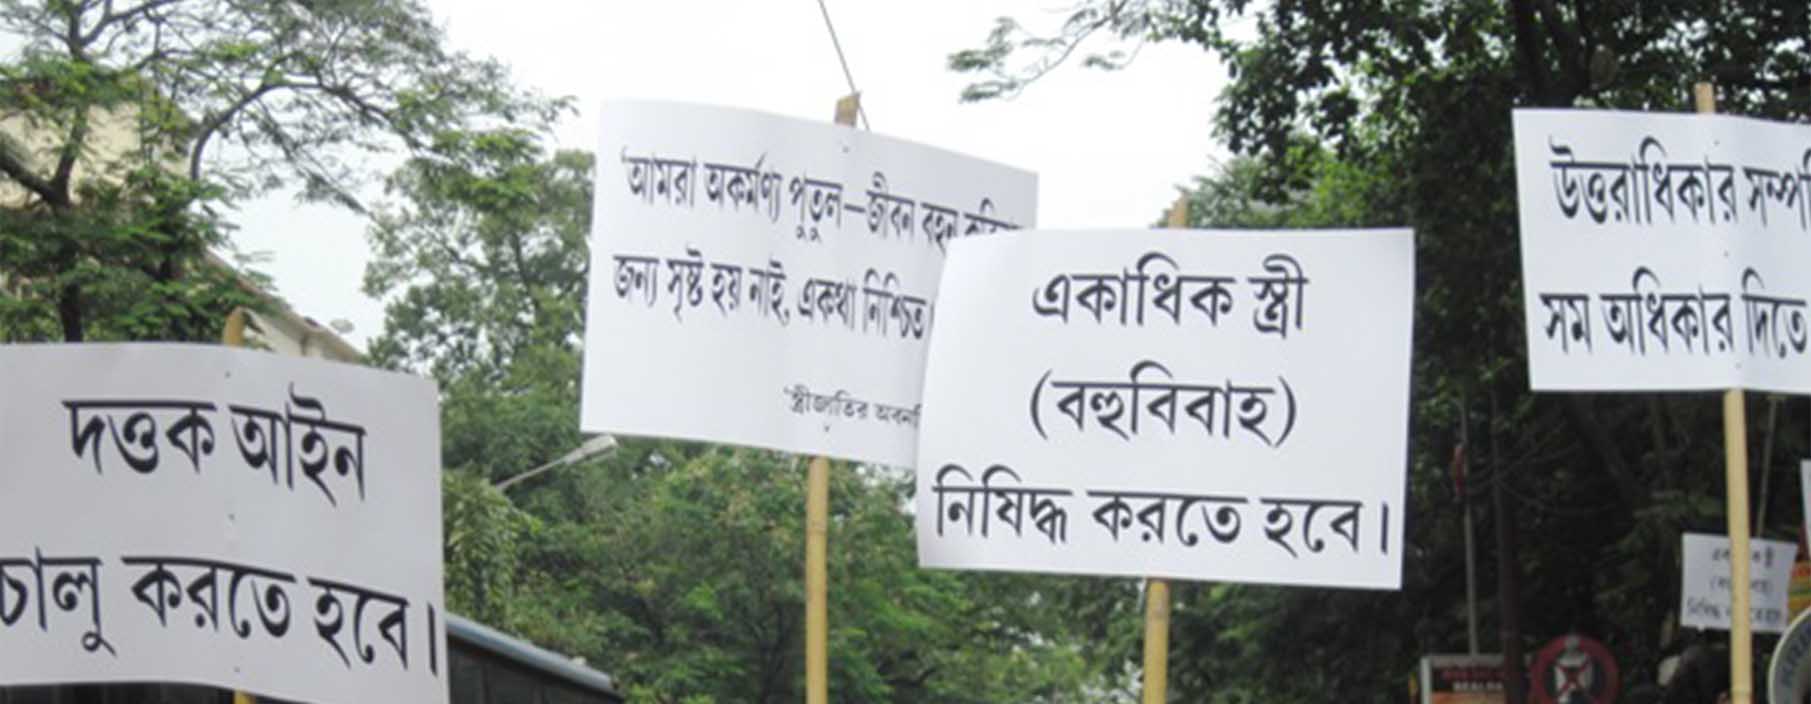 দত্তক আইন
চালু করতে হবে।
'আমরা অকর্মণ্য পুতুল–জীবন বহন
জন্য সৃষ্ট হয় নাই, একথা নিশ্চিত
'স্ত্রীজাতির
একাধিক স্ত্রী
(বহুবিবাহ)
নিষিদ্ধ করতে হবে।
উত্তরাধিকার
সম অধিকার দিতে